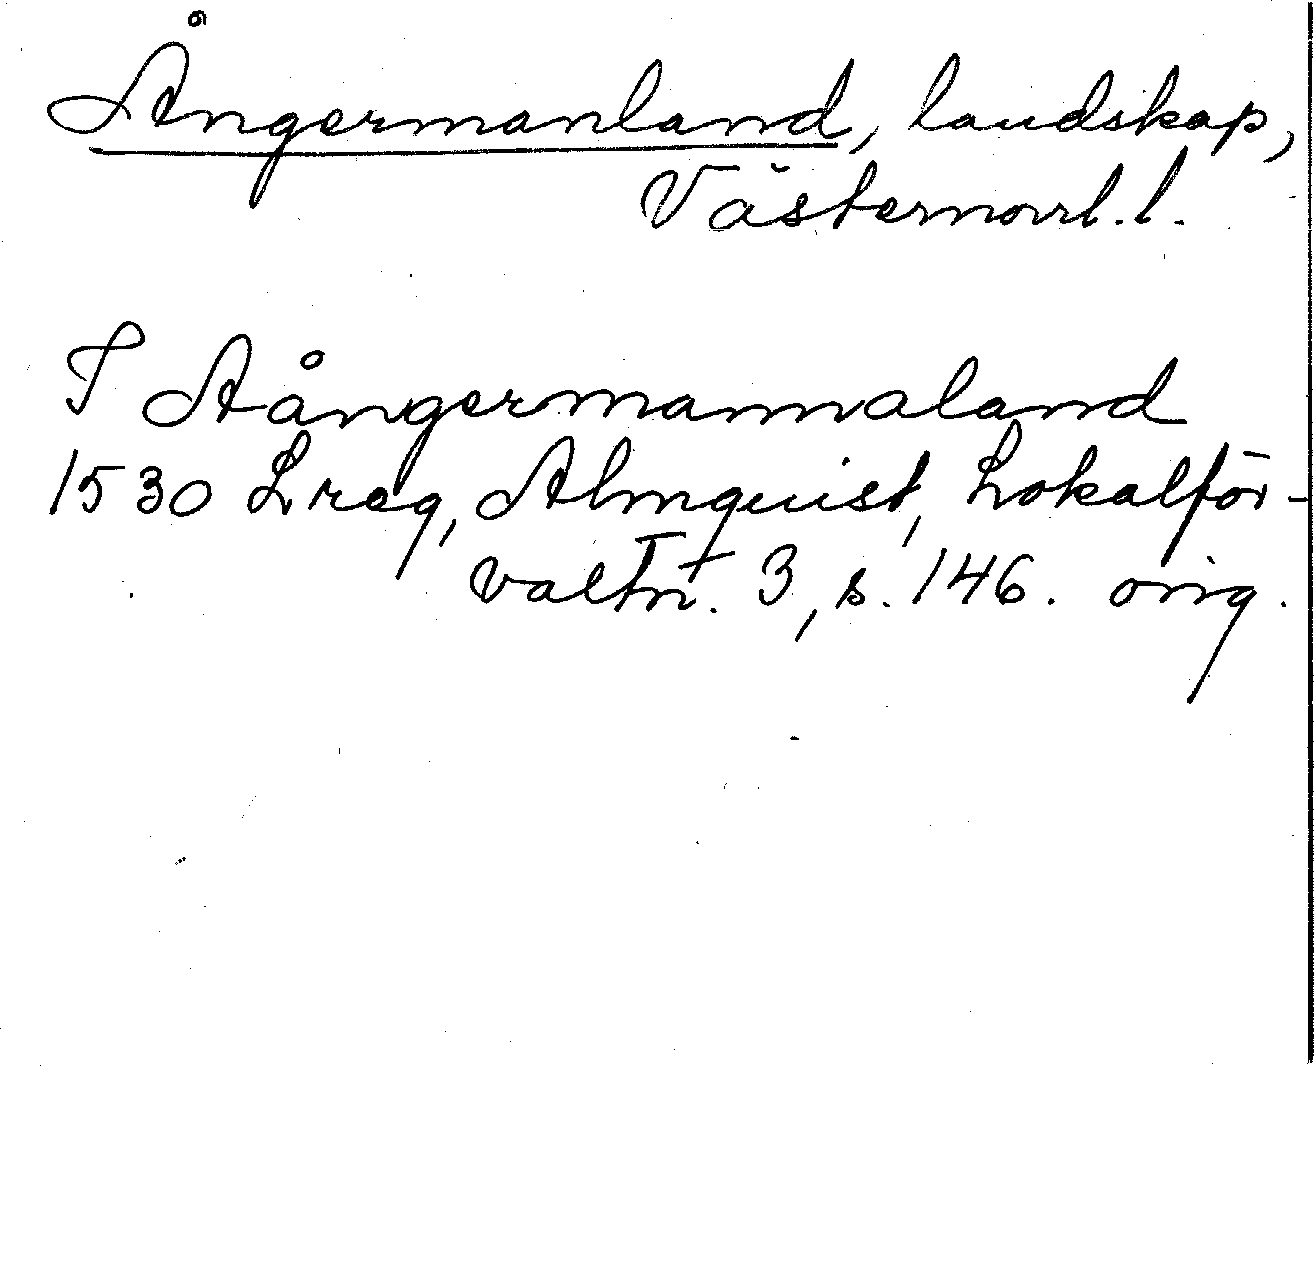 Ångermanland, landskap,
Västernorrl. l.
I Aångermannaland
1530 Lreg, Almquist, Lokalför-
valtn. 3, s. 146. orig.